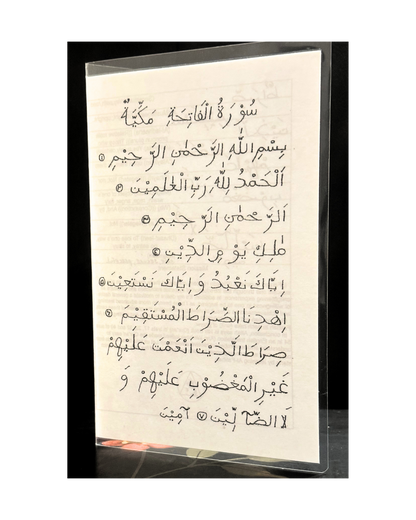 سُوْرَةُ الْفَاتِحَةِ مَكِّيَّةٌ
بِسْمِ اللّٰهِ الرَّحْمٰنِ الرَّحِيْمِ ①
اَلْحَمْدُ لِلّٰهِ رَبِّ الْعٰلَمِيْنَ ②
اَلرَّحْمٰنِ الرَّحِيْمِ ③
مٰلِكِ يَوْمِ الدِّيْنِ ④
اِيَّاكَ نَعْبُدُ وَاِيَّاكَ نَسْتَعِيْنَ ⑤
اِهْدِنَا الصِّرَاطَ الْمُسْتَقِيْمَ ⑥
صِرَاطَ الَّذِيْنَ اَنْعَمْتَ عَلَيْهِمْ
غَيْرِ الْمَغْضُوْبِ عَلَيْهِمْ وَ
لَا الضَّآلِّيْنَ ⑦ آمِيْنَ